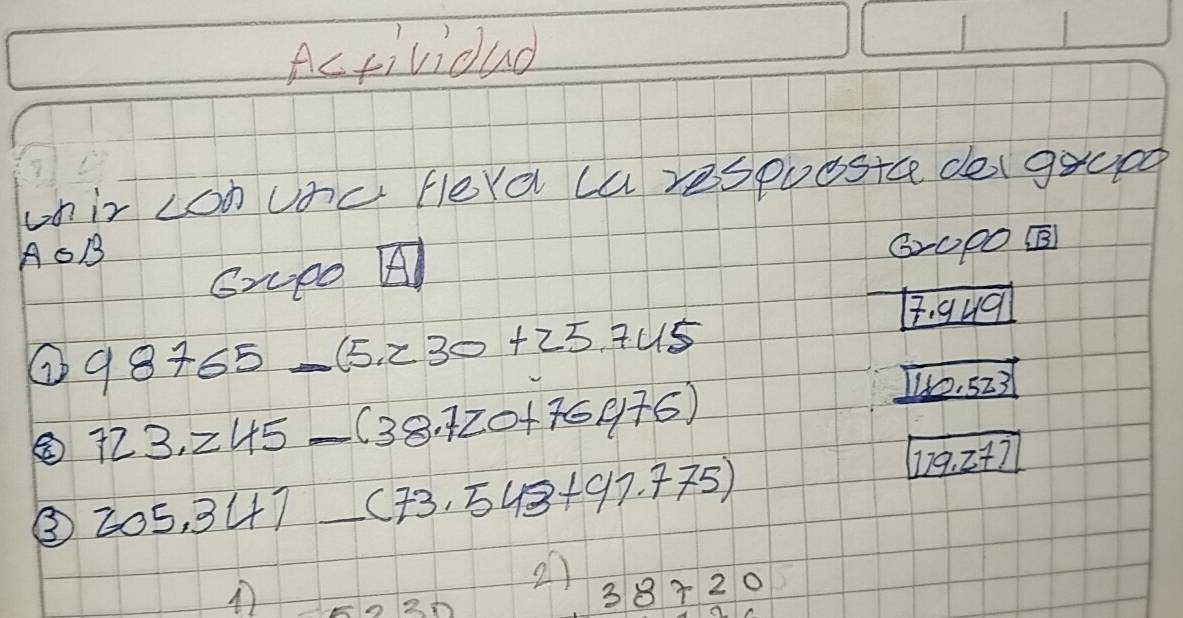 Actividad
unir con una fleva la respuesta del grupo
A o B
Grupo A
Grupo B
7.949
① 98765 - (5.230 + 25.745
② 123.245 - (38.720 + 76.976)
③ 205.341 - (73.543 + 91.775)
1) 5230
2) 38720